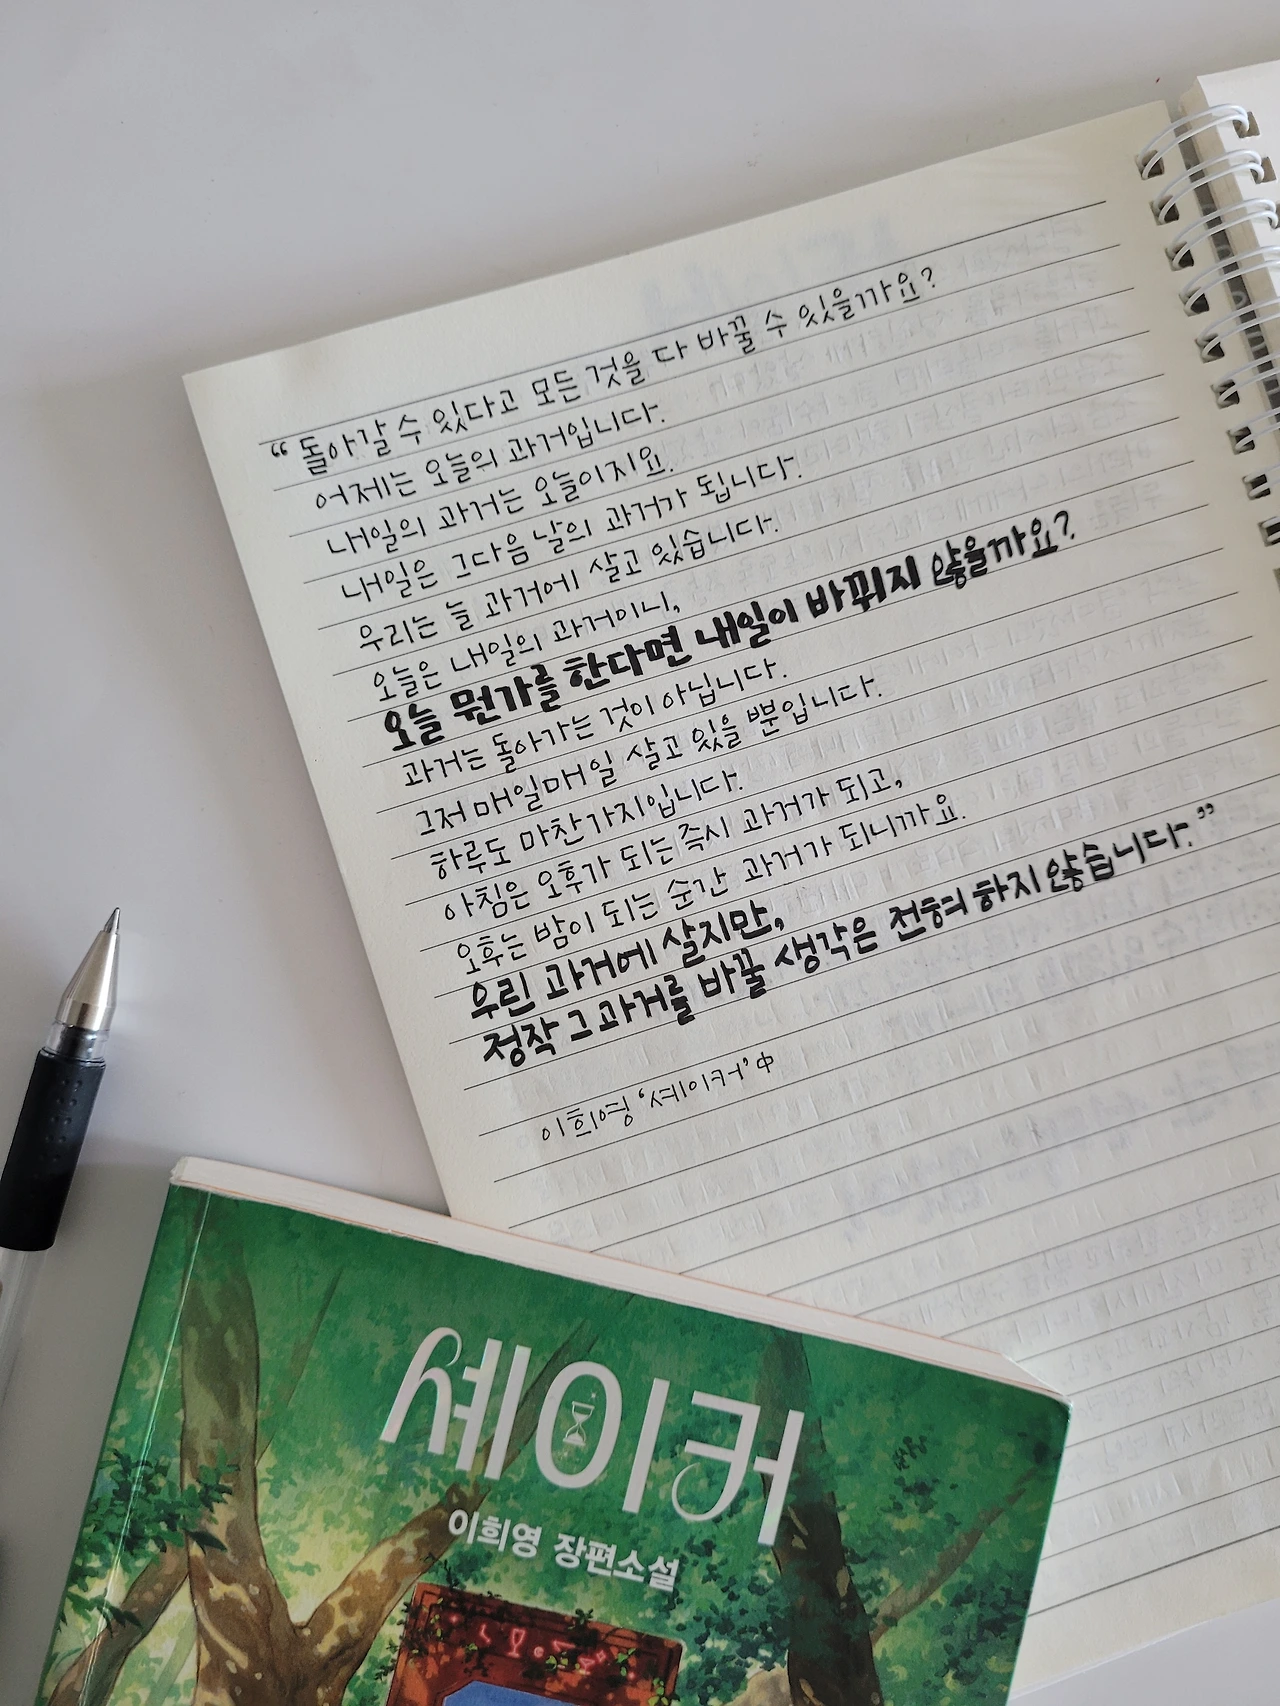 “돌아갈 수 있다고 모든 것을 다 바꿀 수 있을까요?
어제는 오늘의 과거입니다.
내일의 과거는 오늘이지요.
내일은 그다음 날의 과거가 됩니다.
우리는 늘 과거에 살고 있습니다.
오늘은 내일의 과거이니,
오늘 뭔가를 한다면 내일이 바뀌지 않을까요?
과거는 돌아가는 것이 아닙니다.
그저 매일매일 살고 있을 뿐입니다.
하루도 마찬가지입니다.
아침은 오후가 되는 즉시 과거가 되고,
오후는 밤이 되는 순간 과거가 되니까요.
우린 과거에 살지만,
정작 그 과거를 바꿀 생각은 전혀 하지 않습니다.”
이희영, ‘셰이커’, 中
셰이커
이희영 장편소설